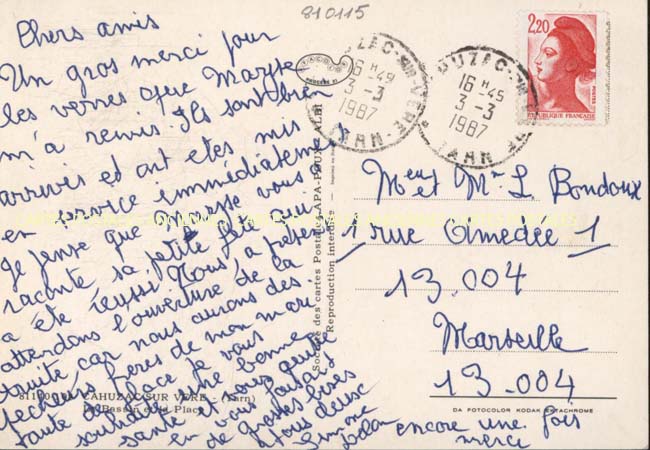 810115
Chers amis
Un gros merci pour
les verres que Maryse
m'a remis. Ils sont bien
arrivés et ont etes mis
en service immédiatement
Je pense que Maryse vous
raconté sa petite fête qui
a été réussi. Nous
attendons l'ouverture de la
truite car nous aurons des
pecheurs freres de mon mari
faute de place je vous
souhaite une bonne
santé et
en vous faisant
de grosses bises
à tous deux
Simone
encore une fois
merci
CAHUZAC-SUR-VERE - (Tarn)
Le Bassin et la Place
Société des cartes Postales APA-POUX - ALBI
Reproduction interdite
16 H 45
3-3
1987
TARN
16 H 45
3-3
1987
TARN
2,20
POSTES
REPUBLIQUE FRANCAISE
Meur et Me L Bondoux
1 rue Amedee 1
13.004
Marseille
13.004
DA FOTOCOLOR KODAK EKTACHROME